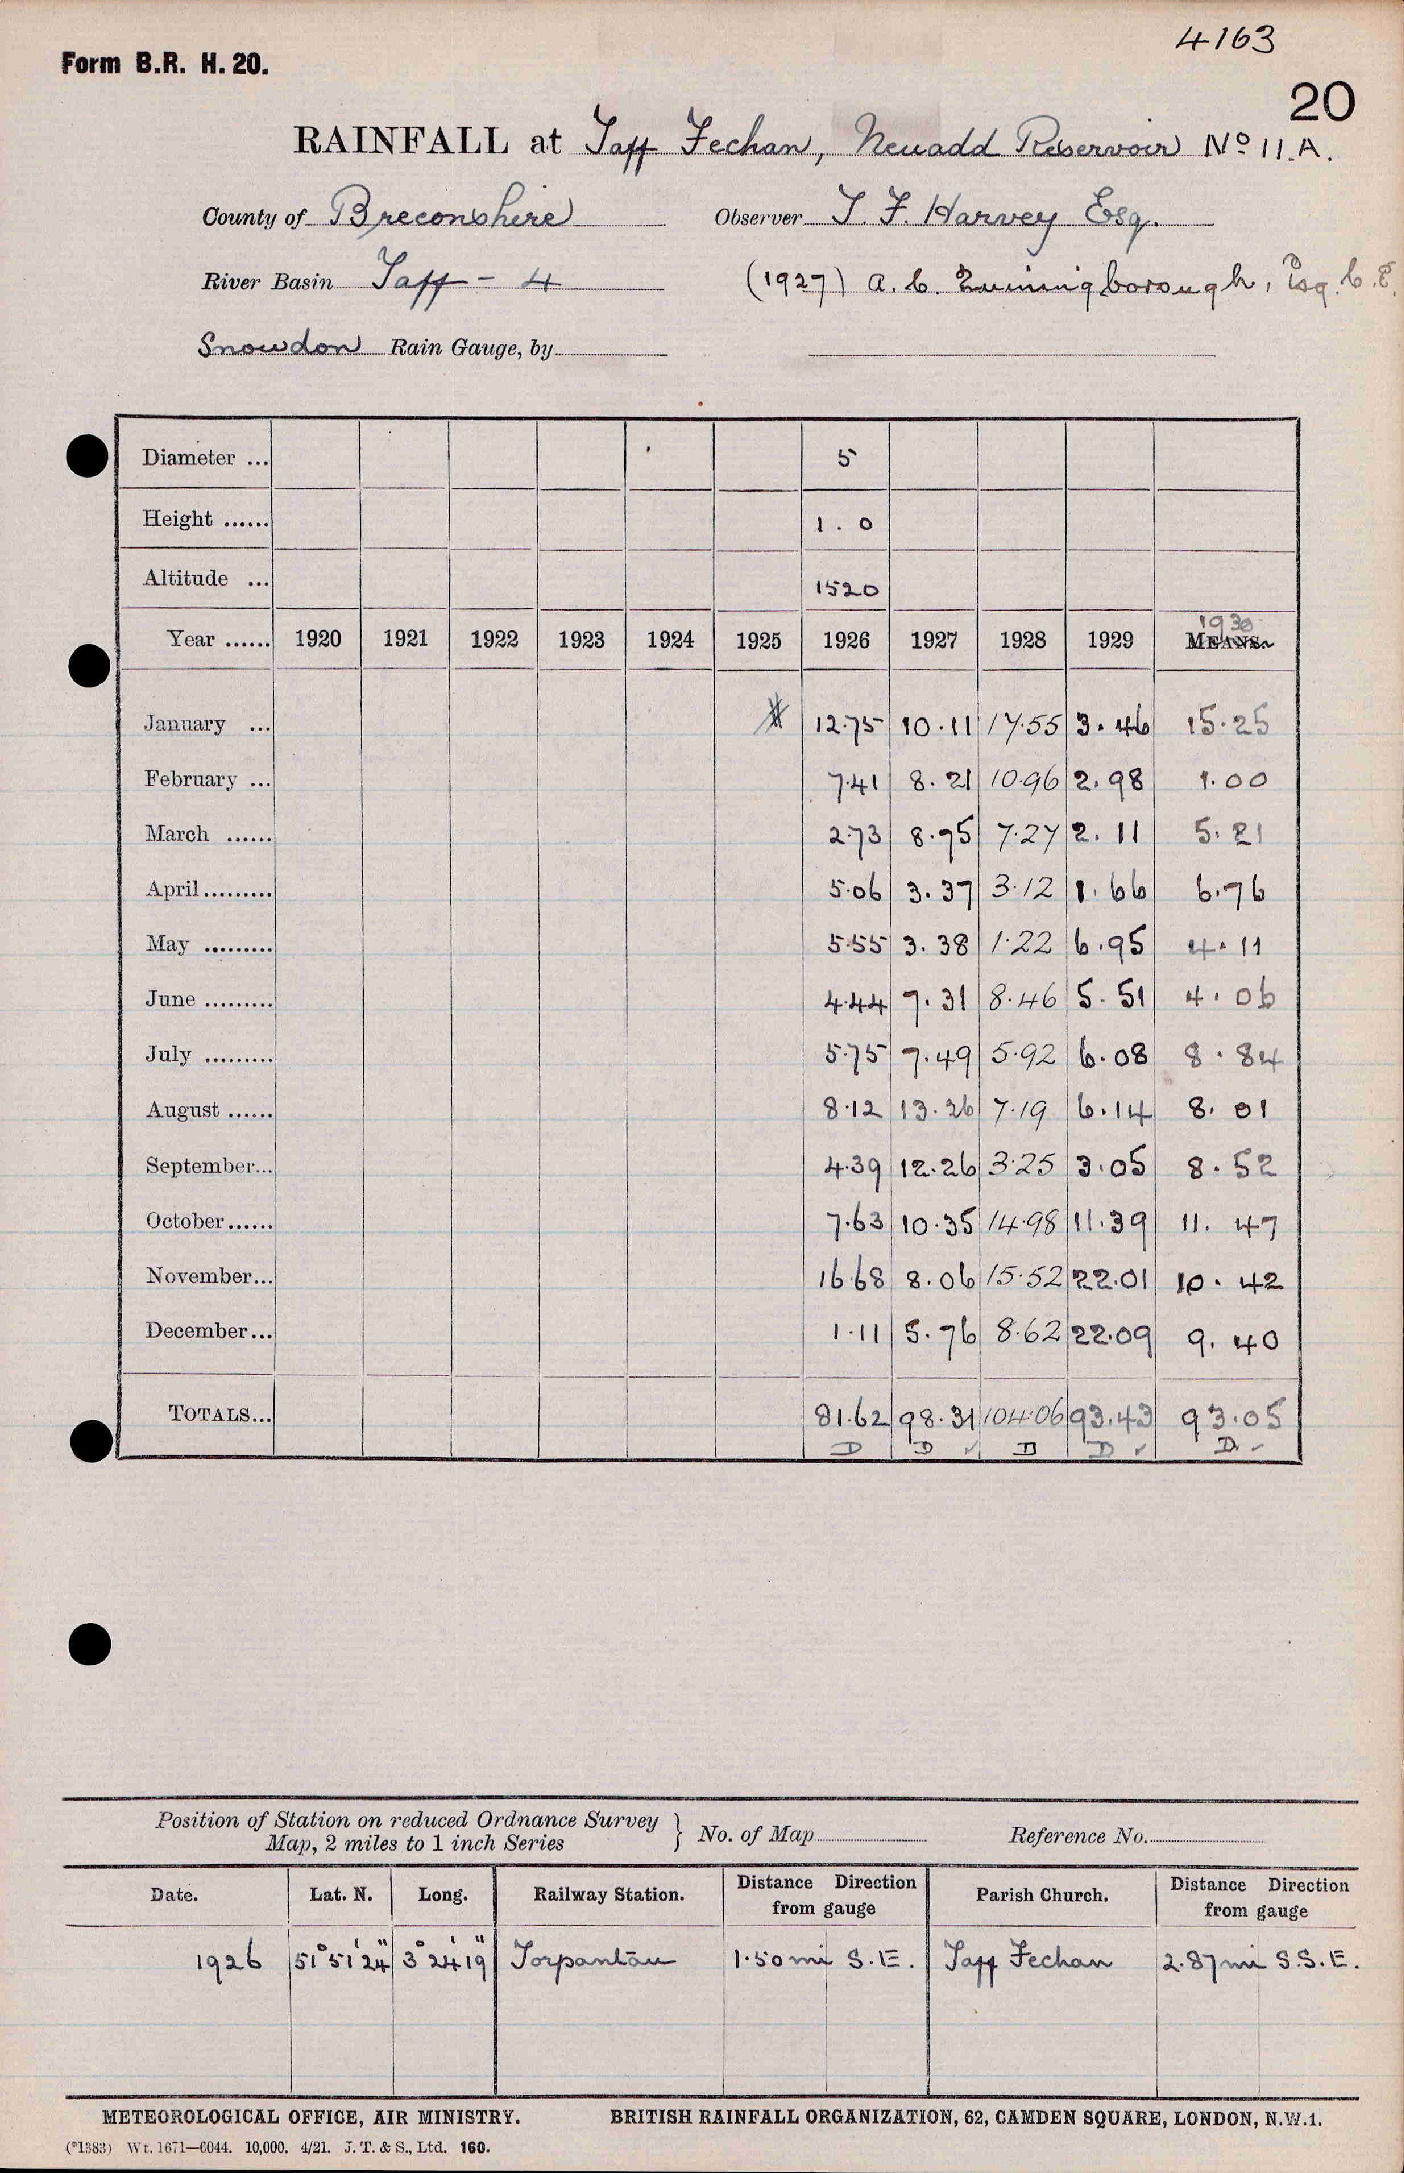 4163
Form B.R. H. 20.
20
RAINFALL at Taff Fechan, Neuadd Reservoir No 11.A.
County of Breconshire Observer T. F. Harvey Esq.
River Basin Taff - 4 (1927) A. C. Esq. C.E.
Snowdon Rain Gauge, by
Diameter ... 5
Height ...... 1.0
Altitude ... 1520
1930
Year ...... 1920 1921 1922 1923 1924 1925 1926 1927 1928 1929 MEANS.
January ... 12.75 10.11 17.55 3.46 15.25
February ... 7.41 8.21 10.96 2.98 1.00
March ...... 2.73 8.75 7.27 2.11 5.21
April ......... 5.06 3.37 3.12 1.66 6.76
May ......... 5.55 3.38 1.22 6.95 4.11
June ......... 4.44 7.31 8.46 5.51 4.06
July ......... 5.75 7.49 5.92 6.08 8.84
August ...... 8.12 13.26 7.19 6.14 8.01
September... 4.39 12.26 3.25 3.05 8.52
October...... 7.63 10.35 14.98 11.39 11.47
November... 16.68 8.06 15.52 22.01 10.42
December... 1.11 5.76 8.62 22.09 9.40
TOTALS... 81.62 98.31 104.06 93.43 93.05
D D ✓ D D ✓ D. ✓
Position of Station on reduced Ordnance Survey
Map, 2 miles to 1 inch Series } No. of Map Reference No.
Date. Lat. N. Long. Railway Station. Distance Direction from gauge Parish Church. Distance Direction from gauge
1926 51°51'24" 3°24'19" Torpantau 1.50 mi S.E. Taff Fechan 2.87 mi S.S.E.
METEOROLOGICAL OFFICE, AIR MINISTRY. BRITISH RAINFALL ORGANIZATION, 62, CAMDEN SQUARE, LONDON, N.W.1.
(*1383) Wt. 1671—6044. 10,000. 4/21. J. T. & S., Ltd. 160.